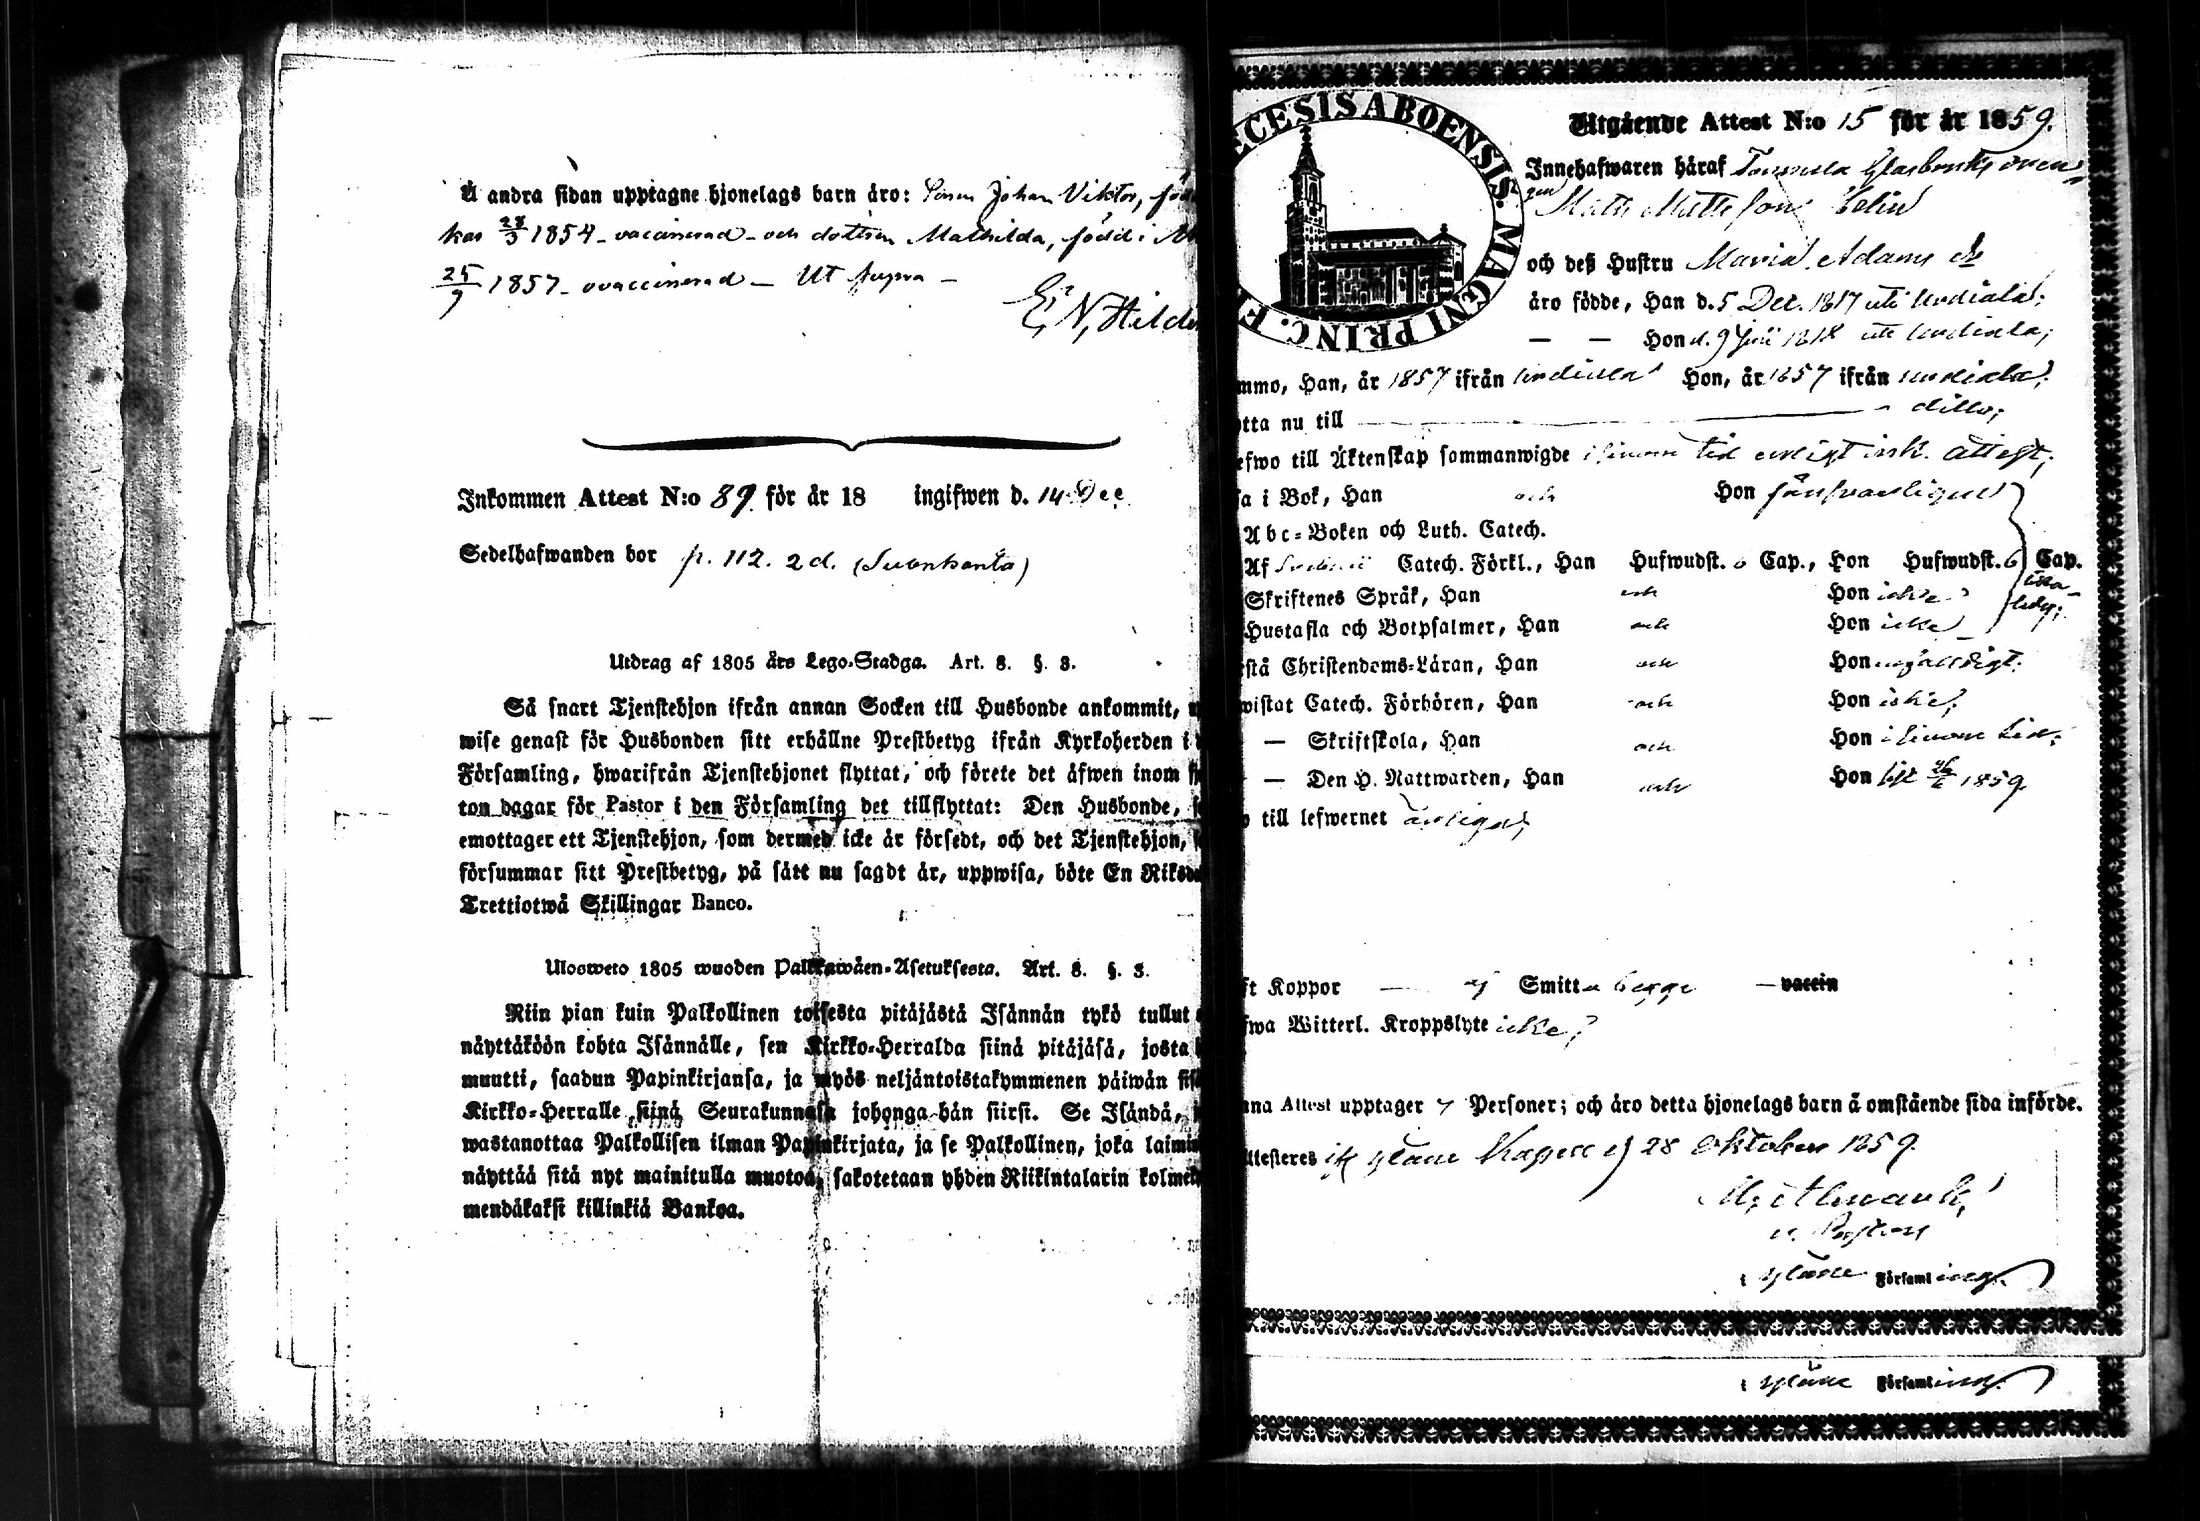 Å andra sidan upptagne hjonelags barn äro: Sonen Johan Viktor, föd
kas 28/3 1854 - vaccinerad - och dottren Mathilda, född i
25/9 1857 - ovaccinerad - Ut supra -
E. N. Hilde
Inkommen Attest N:o 89 för år 18 ingifwen d. 14 Dec.
Sedelhafwanden bor p. 112. 2d. (Suonkanta)
Utdrag af 1805 års Lego-Stadga. Art. 8. §. 3.
Så snart Tjenstehjon ifrån annan Socken till Husbonde ankommit,
wise genast för Husbonden sitt erhållne Prestbetyg ifrån Kyrkoherden i
Församling, hwarifrån Tjenstehjonet flyttat, och förete det äfwen inom
ton dagar för Pastor i den Församling det tillflyttat: Den Husbonde,
emottager ett Tjenstehjon, som dermed icke är försedt, och det Tjenstehjon,
försummar sitt Prestbetyg, på sätt nu sagdt är, uppwisa, böte En Riksda
Trettiotwå Skillingar Banco.
Ulosweto 1805 wuoden Palkkawäen-Asetuksesta. Art. 8. §. 3.
Niin pian kuin Palkollinen toisesta pitäjästä Isännän tykö tullut
näyttäköön kohta Isännälle, sen Kirkko-Herralda siinä pitäjäsä, josta
muutti, saadun Papinkirjansa, ja myös neljäntoistakymmenen päiwän sis
Kirkko-Herralle siinä Seurakunnasa johonga hän siirsi. Se Isändä,
wastanottaa Palkollisen ilman Papinkirjata, ja se Palkollinen, joka laimin
näyttää sitä nyt mainitulla muotoa, sakotetaan yhden Riikintalarin kolmek
mendäkaksi killinkiä Bankoa.
ECESIS ABOENSIS. MAGNI PRINC. F
Utgående Attest N:o 15 för år 1859.
Innehafwaren häraf
Matts Mattsson
och deß Hustru Maria Adams dr
äro födde, Han d. 5 Dec. 1817 uti Urdiala;
— — Hon d. 9 Juli 1818 uti Urdiala;
mmo, Han, år 1857 ifrån Urdiala Hon, år 1857 ifrån Urdiala;
ytta nu till ditto;
efwo till Äktenskap sammanwigde i sinom tid enligt ink. attest;
sa i Bok, Han och Hon försvarligen
Abc-Boken och Luth. Catech.
Af Catech. Förkl., Han Hufwudst. 6 Cap., Hon Hufwudst. 6 Cap.
Skriftenes Språk, Han och Hon icke
Hustafla och Botpsalmer, Han och Hon icke
rstå Christendoms-Läran, Han och Hon enfaldigt.
wistat Catech. Förhören, Han och Hon icke;
— Skriftskola, Han och Hon i sinom tid;
— Den H. Nattwarden, Han och Hon 26/6 1859.
o till lefwernet ärliga;
ft Koppor af Smitta begge — vaccin
fwa Witterl. Kroppslyte icke;
nna Attest upptager 4 Personer; och äro detta hjonelags barn å omstående sida införde.
ttesteres af Yläne Kapell d 28 Oktober 1859.
M. Alnark
v. Pastor
i Yläne Församling.
i Yläne Församling.